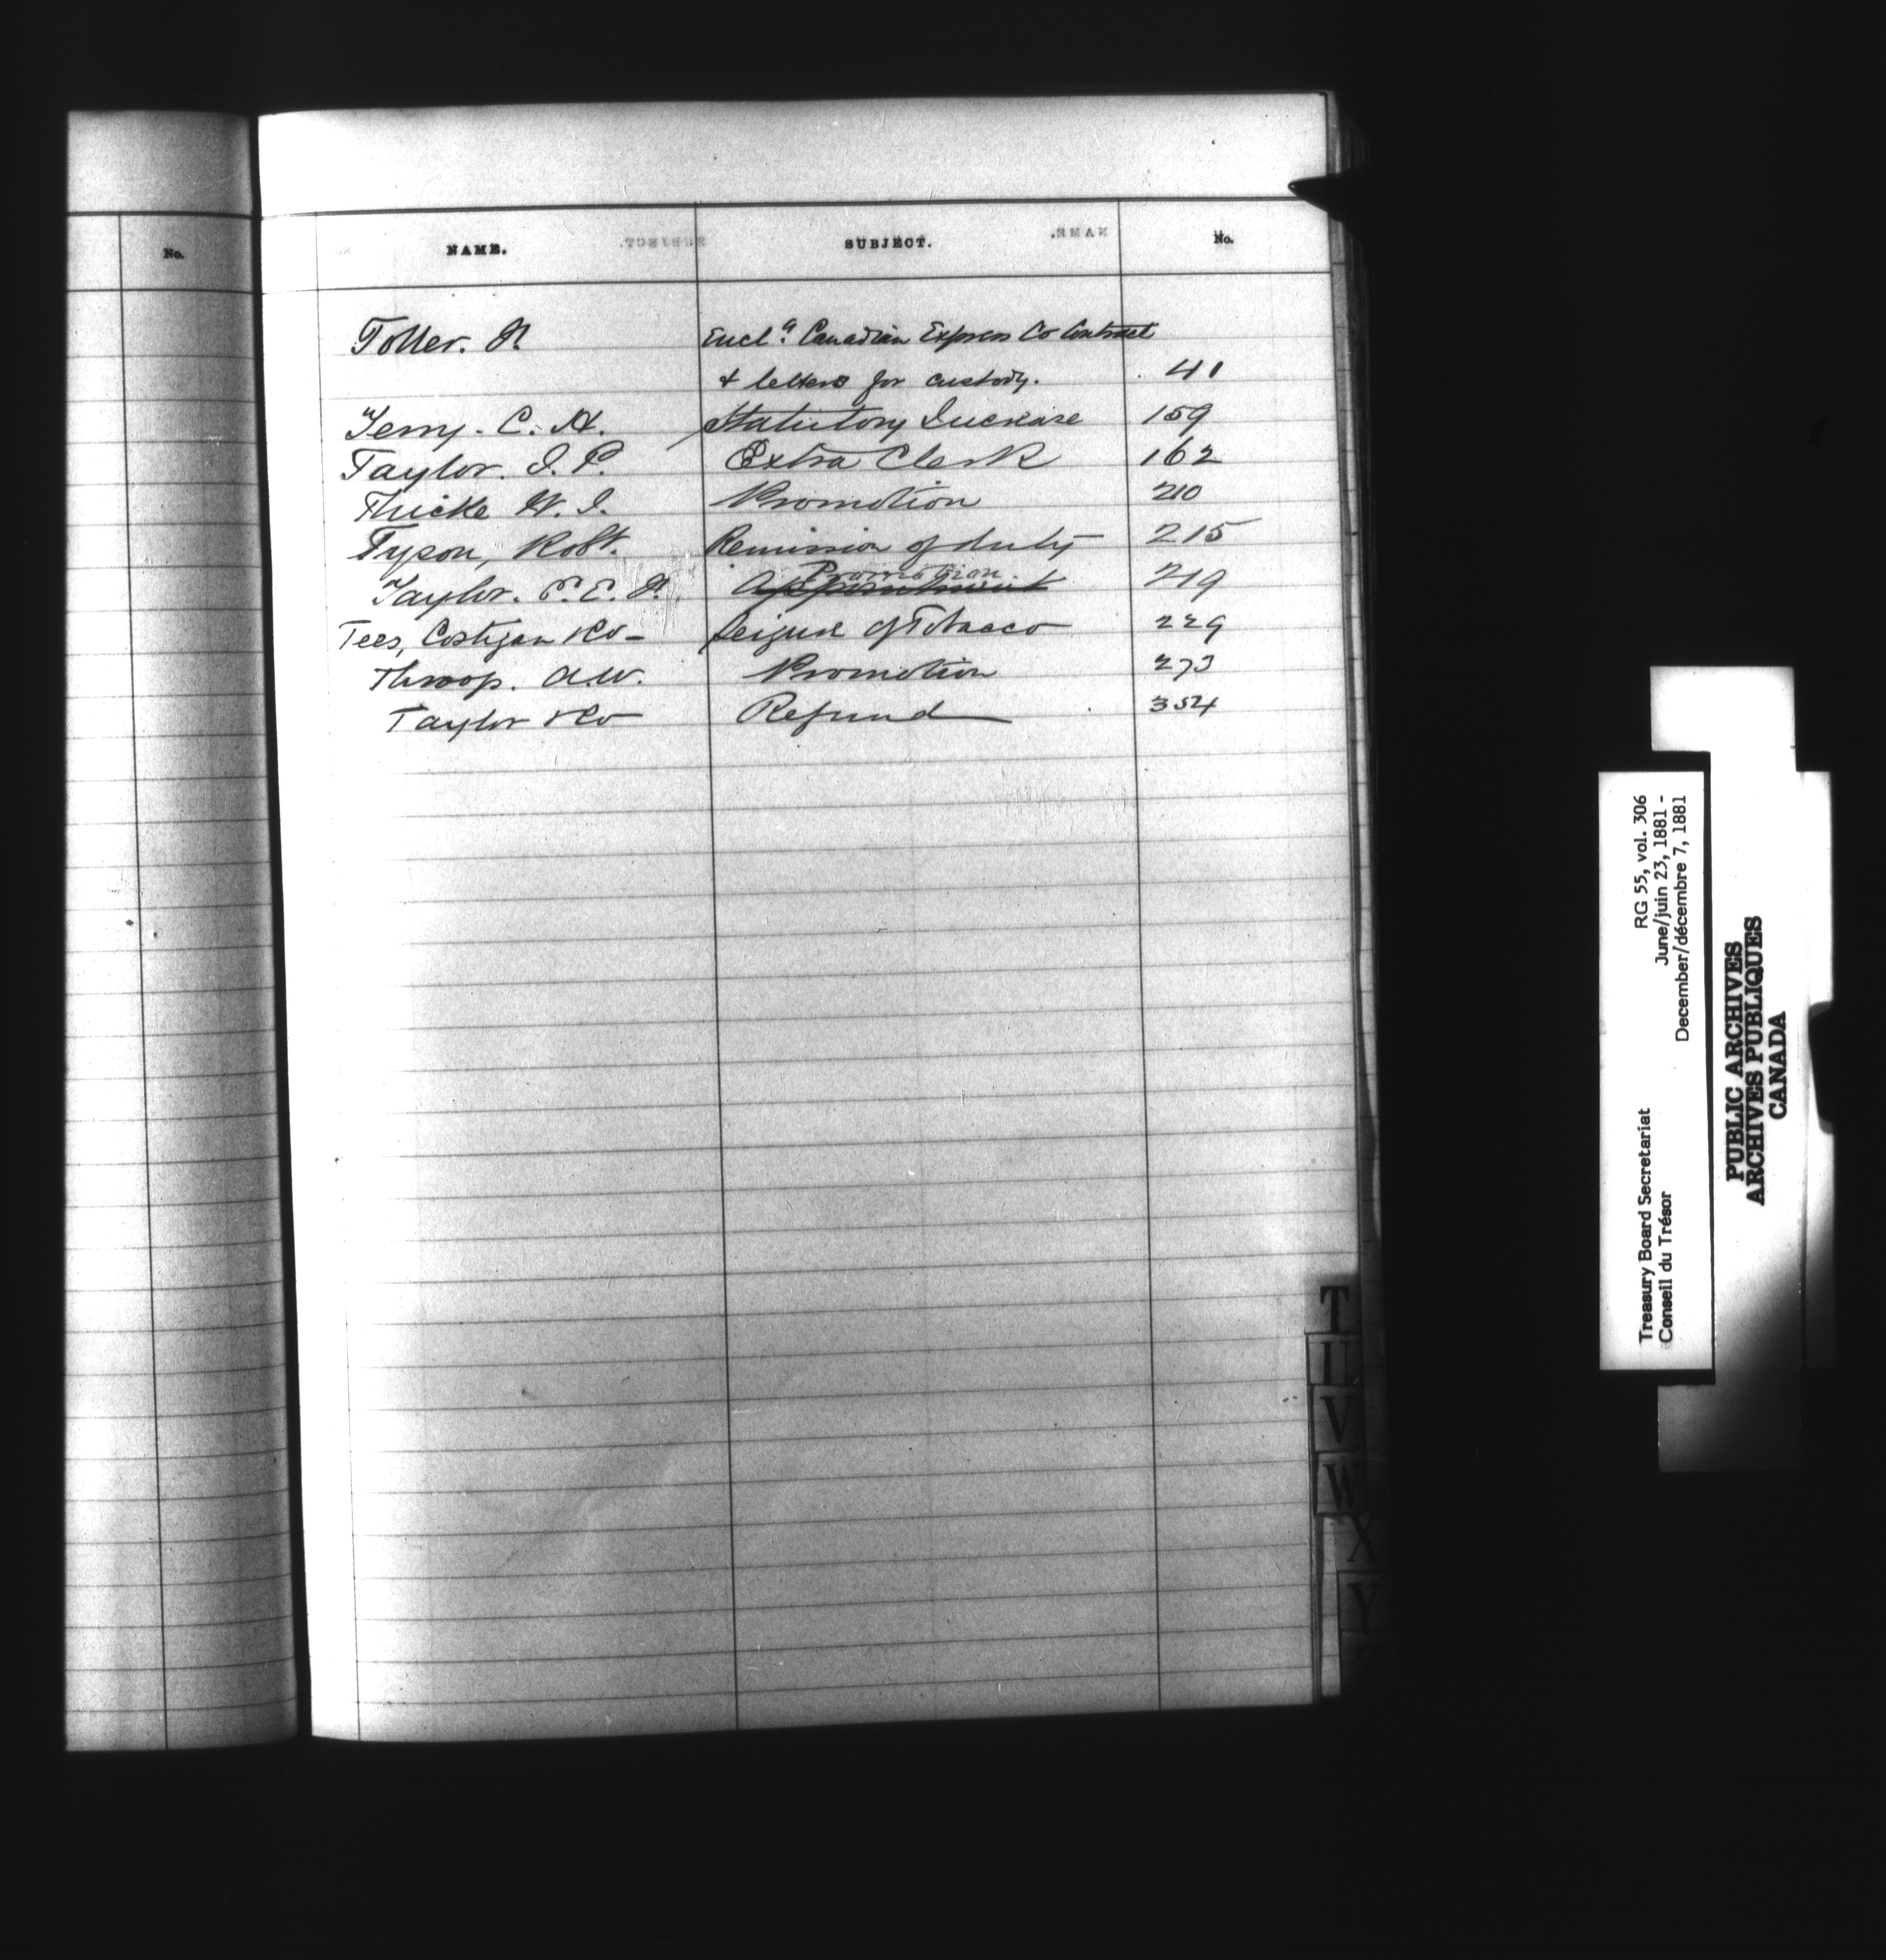 No.
NAME. SUBJECT. No.
Toller. Encl.g Canadian Express Co Contract
& letters for custody. 41
Terry. C. H. Statutory Increase 159
Taylor. J. P. Extra Clerk 162
Thicke H. J. Promotion 210
Tyson, Robt. Remission of duty 215
Promotion
Taylor. Appointment 219
Tees, Costigan & Co - Seizure of Tobacco 229
Throop. A.W. Promotion 273
Taylor & Co Refund 354
T
U
V
W
X
Y
Treasury Board Secretariat RG 55, vol. 306
Conseil du Trésor June/juin 23, 1881 -
December/décembre 7, 1881
PUBLIC ARCHIVES
ARCHIVES PUBLIQUES
CANADA